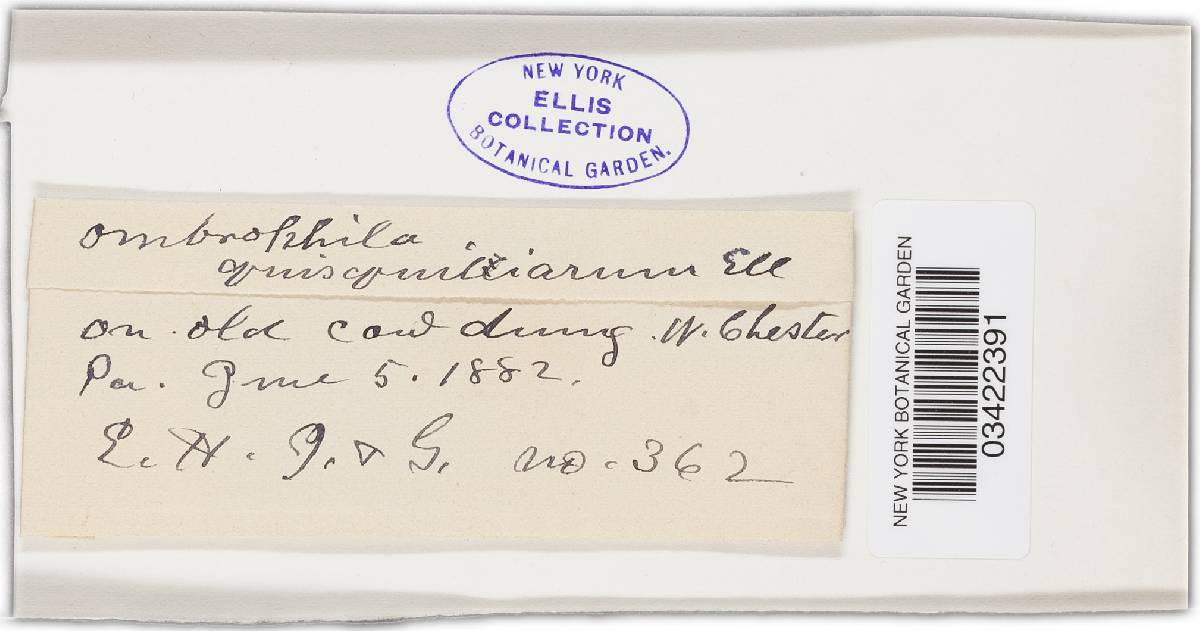 NEW YORK
ELLIS
COLLECTION
BOTANICAL GARDEN.
Ombrophila
quisquiliarum Ell
on old cow dung. W. Chester
Pa. June 5. 1882.
E. H. J. & G. no. 362
NEW YORK BOTANICAL GARDEN
03422391